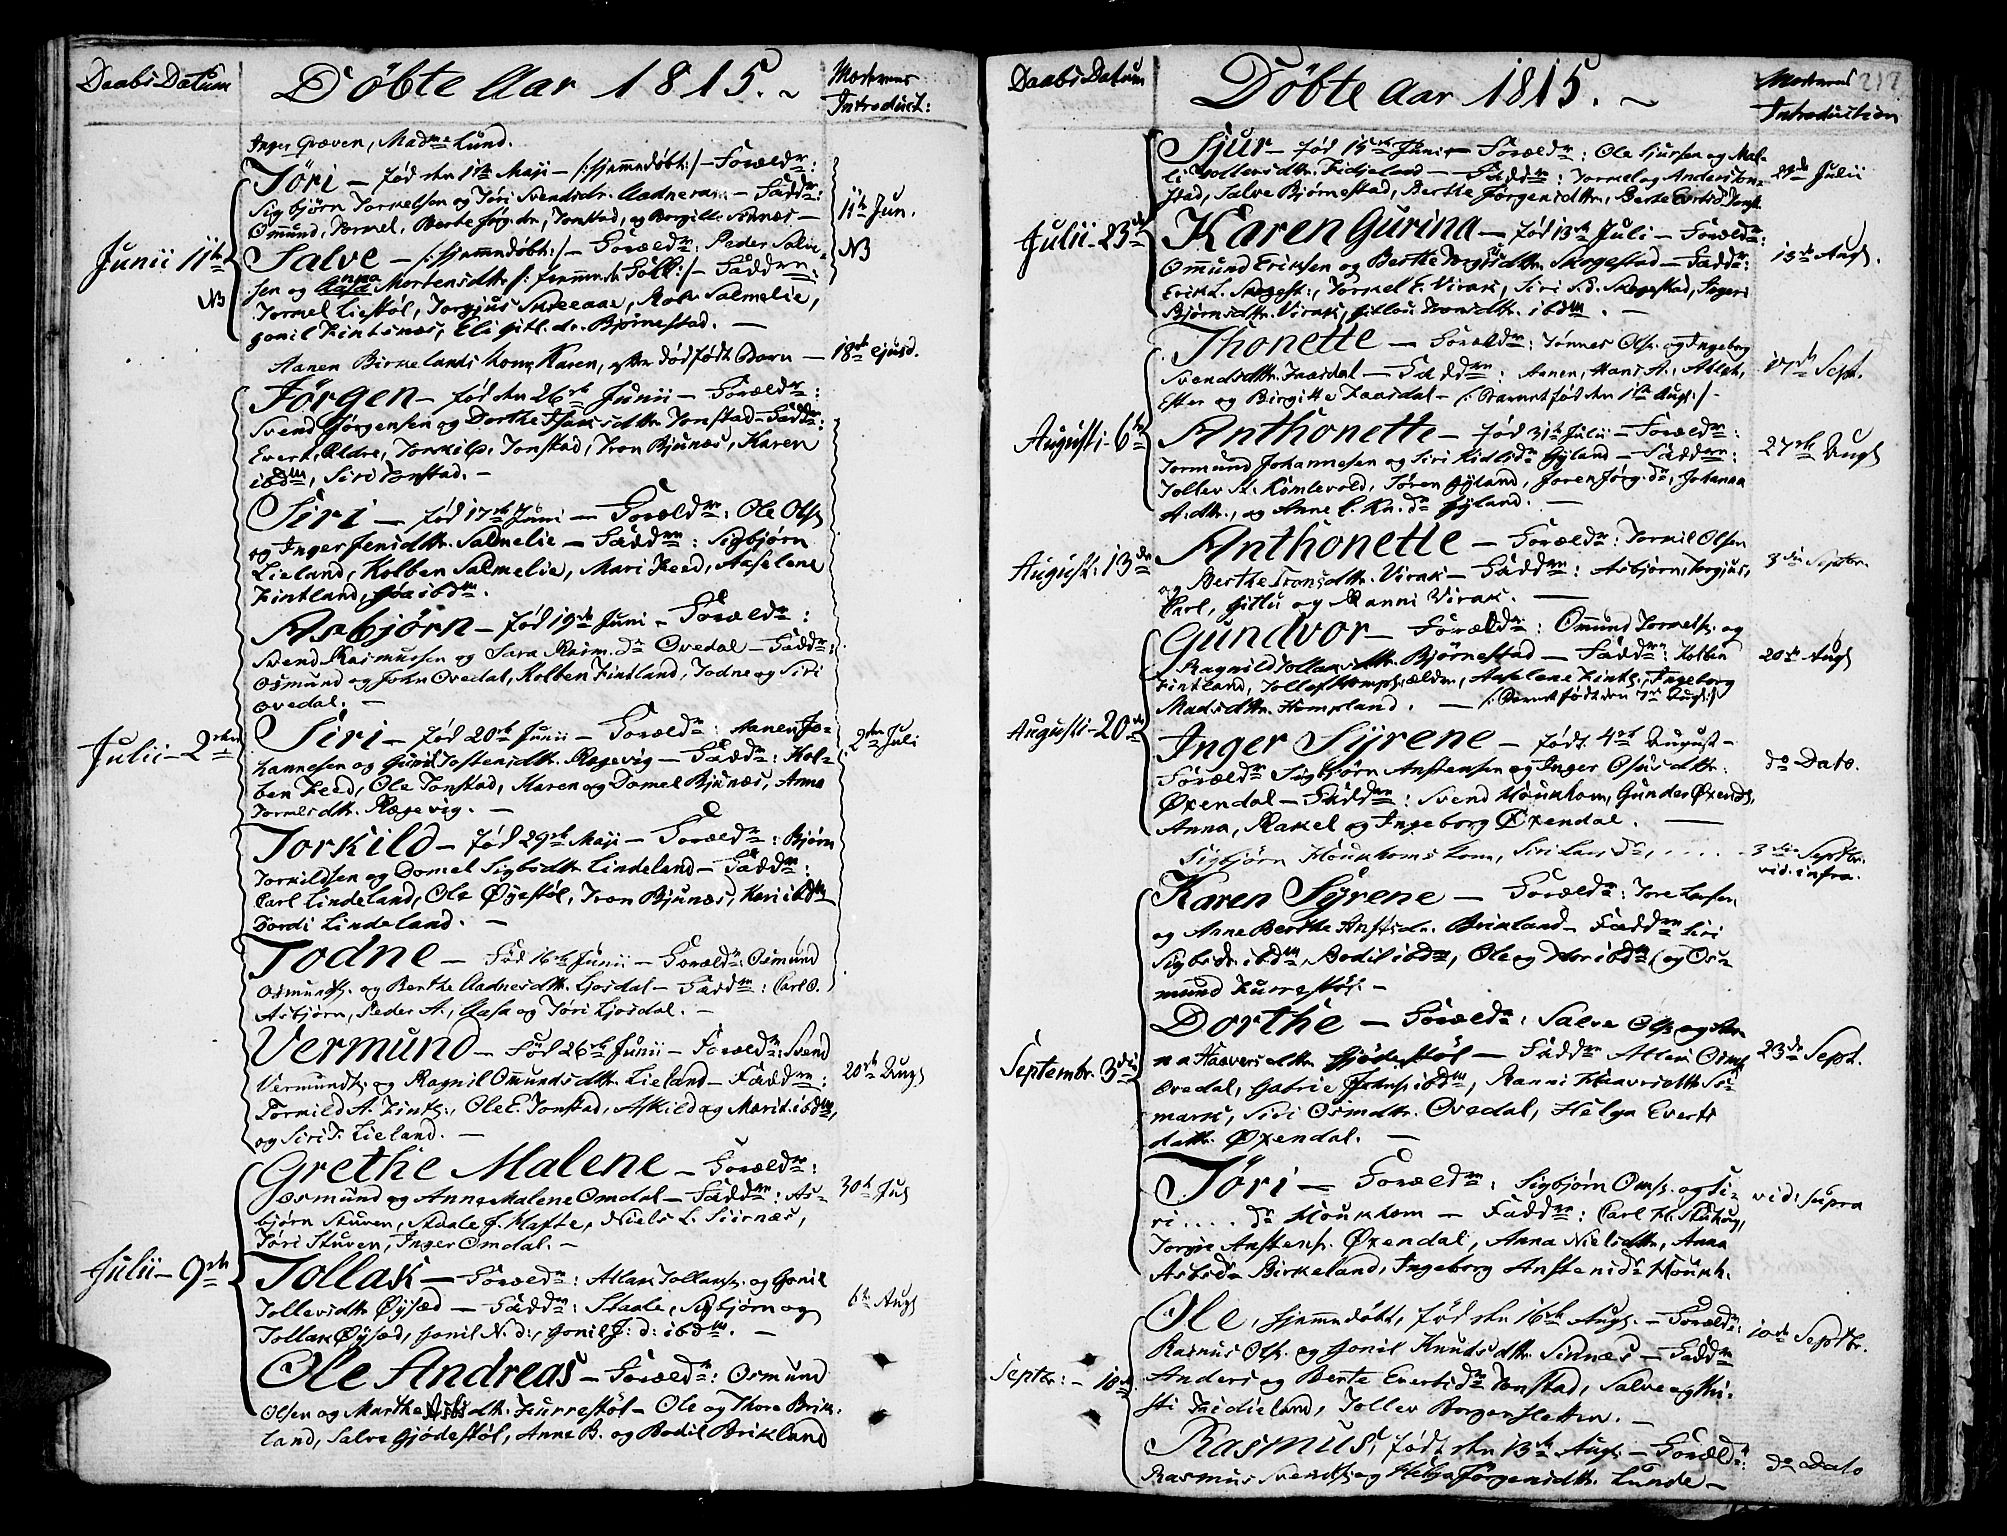 Daabs Datum
Döbte Aar 1815. ~
Mødrenes
Introduct:
Inger Græven, Madme Lund.
Töri — fød den 17de Maji — /:hjemmedøbt:/ — Foræld:
Sigbjörn Torkelsen og Töri Svendsdr. Aadneram — Fadd:
Omund, Tormel, Berte Jörg.dr. Tonstad, og Borgille Sinnes —
11te Jun.
Junii 11te
NB
Salve — /:hjemmedøbt:/ — Foræld: Peder Salve-
NB
sen og Anna Mortensdtr /: :/ — Fadd:
Tormel Liestöl, Torgjus Skreaae, Rolv Salmelie,
gonil Fintsnæs, Eli Gitl.dr. Bjørnestad. —
Aanen Birkelands kone Karen, efter dødfødt Barn — 18de ejusd.
Jörgen — fød den 26de Junii — Foræld:
Svend Jörgensen og Dorthe Isaksdtr. Tonstad — Fadd:
Evert, Ældre, Torkil, Tonstad, Tron Bjunæs, Karen
ibdm, Siri Tonstad. —
Siri — fød 17de Juni — Foræld: Ole Ols.
og Inger Jensdtr. Salmelie — Fadd: Sigbjörn
Lieland, Kolben Salmelie, Mari Feed, Aaselene
Fintland, ibdm.
Asbjörn — fød 19de Juni — Foræld:
Svend Rasmussen og Sara Rasm.dr Ovedal — Fadd:
Osmund og John Ovedal, Kolben Fintland, Todne og Siri
Ovedal. —
Julii — 2den
Siri — fød 20de Junii — Foræld: Aanen Jo-
hannesen og Gunil Tostensdtr. Rægevig — Fadd: Kol-
ben Feed, Ole Tonstad, Maren og Domel Bjunæs, Anna
Tormelsdtr. Rægevig. —
2den Juli
Torkild — fød 29de Maji — Foræld: Bjørn
Torkildsen og Domel Sigbsdtr Lindeland — Fadd:
Carl Lindeland, Ole Øyestöl, Tron Bjunæs, Kari ibdm
Tordi Lindeland. —
Todne — Fød 16de Junii — Foræld: Osmund
Osmunds. og Berthe Aadnesdtr. Ljosdal — Fadd: Carl O.
Asbjörn, Peder A., Aasa og Töri Ljosdal. —
Vermund — Fød 26de Junii — Foræld: Svend
Vermunds. og Ragnil Omundsdtr. Lieland — Fadd:
Torkild A. Fints., Ole E. Tonstad, Askild og Marit ibdm,
og Siri T. Lieland. —
20de Augs
Grethe Malene — Foræld:
Osmund og Anne Malene Omdal — Fadd: As-
björn Stuven, Staale J. Hafte, Niels L. Siirnæs,
Töri Stuven, Inger Omdal. —
30te Jul
Julii — 9de
Tollak — Foræld: Atlak Tollaks. og Gonil
Tollevsdtr Øysæd — Fadd: Staale, Sigbjörn og
Tollak Øysæd, Gonil N.d:, Gonil J: d: ibdm. —
6te Augs
Ole Andreas — Foræld: Osmund
Olsen og Marthe Asbsdtr. Furrestöl — Ole og Thore Brik-
land, Salve Gjödestöl, Anne B. og Bodil Brikland
Daabs Datum
Döbte Aar 1815. ~
Mødrenes
Introduction
217
Sjur — fød 15de Juni — Foræld: Ole Sjursen og Mal-
li Tollevsdtr. Fidjeland — Fadd: Tormel og Anders Ton-
stad, Salve Bjørnestad, Berthe Jörgensdtr., Berte Evertsd. Tonst.
Julii
Julii 23de
Karen Gurina — fød 13de Juli — Foræld:
Omund Eriksen og Berthe Torgiusdtr. Skogestad — Fadd:
Erik L. Skogest:, Tormel E. Virak, Siri S.d. Skogestad, Ingeri
Bjørnsdtr. Virak, Gitlou Tronsdtr. ibdm. —
13de Augs.
Thonette — Foræld: Tönnes Ols. og Ingeborg
Svendsdtr. Faasdal — Fadd: Aanen, Hans A., Atlak,
Ester og Birgitte Faasdal — /: Barnet fød den 1ste Augs:/
17de Sept.
Augusti 6te
Anthonette — fød 31te Julii — Foræld:
Tormund Johannesen og Siri Kidlsdr Gyland — Fadd:
Tollev St. Komlevold, Tören Gyland, Joren Jörg. dr, Johanna
A.dtr., og Anne C. Kn.dr Gyland. —
27de Augs
August. 13de
Anthonette — Foræld: Torkil Olsen
og Berthe Tronsdtr. Virak — Fadd: Asbjörn, Torgjus,
Carl, Gitlu og Ranni Virak. —
3die Septbr.
Gundvor — Foræld: Omund Tormels. og
Ragnild Tollaksdtr. Bjørnestad — Fadd: Kolben
Fintland, Tollef Hompl. ældre, Aaselene Fints., Ingeborg
Madsdtr. Hompland. — /: Barnet født den 7de Augs:/
20de Augs
Augusti — 20de
Inger Syrene — født 4de August —
Foræld: Sigbjörn Anstensen og Inger Osulsdtr.
Øxendal — Fadd: Svend Houkhom, Gunder Øxend.,
Anna, Rakel og Ingeborg Øxendal. —
do Dato.
Sigbjörn Houkhoms kone, Siri Larsdr, . . . . . 3die Septbr.
vid: infra.
Karen Syrene — Foræld: Tore Larsen
og Anne Berthe Anstsdr. Brikland — Fadd: Siri
Sigbsdr. ibdm, Bodil ibdm, Ole og ibdm, og Os-
mund Furrestöl. —
Septembr. 3die
Dorthe — Foræld: Salve Ols. og An-
na Haaversdtr. Gjödestöl — Fadd: Atlei Osm.
Ovedal, Gabriel Johns. ibdm, Ranni Haavrsdtr. Si-
mark, Siri Osmdtr. Ovedal, Helga Everts
datr. Øxendal. —
23de Sept.
Töri — Foræld: Sigbjörn Oms. og Si-
ri .... dr Houkhom — Fadd: Carl H. Stuhoug,
Torgie Anstens. Øxendal, Anna Nielsdtr, Anna
Asbsdr Birkeland, Ingeborg Anstensdr Houkh.
vid: supra
Septbr: — 10de
Ole, hjemmedøbt, fød den 16de Augs. — Foræld:
Rasmus Ols. og Gonil Knudsdtr. Sinnæs — Fadd:
Anders og Berte Evertsdr Tonstad, Salve og Chri-
sti Fidieland, Tollev Borgensletten. —
10de Septbr.
Rasmus, født den 13de Augs. — Foræld:
Rasmus Svends. og Helga Jörgensdtr. Lunde —
do Dato